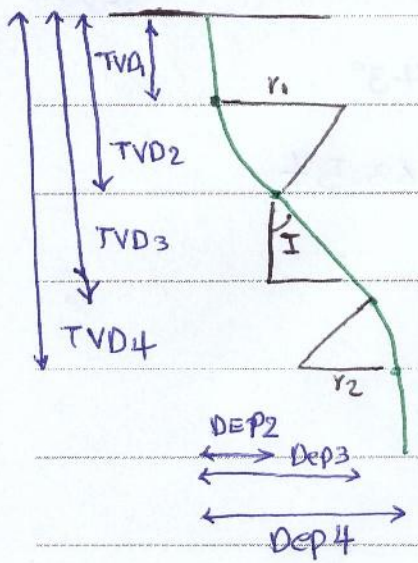 TVD1
r1
TVD2
I
TVD3
TVD4
r2
DEP2
Dep3
Dep4